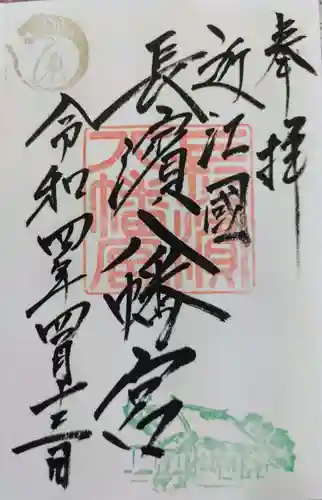 奉拝
近江國
長濱八幡宮
令和四年四月十三日
長濱八幡宮